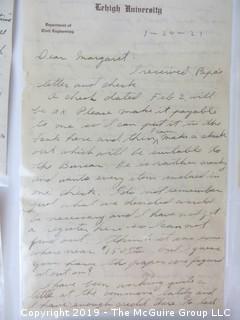 Lehigh University
Department of
Civil Engineering
1-24-21
Dear Margaret:
I received Papa's
letter and check.
A check dated Feb 2 will
be OK Please make it payable
to me so I can put it in the
bank here and thing make a check
out which will be suitable to
the Bursar. He is rather cranky
and wants every item included in
one check. I do not remember
just what we decided would
be necessary and I have not got
a register here so I can not
find out. I think it was some
where near
you have the paper we figured
it out on?
I have been working quite a
little at the commons lately and
have enough credit there to last
Copyright 2019 - The McGuire Group LLC